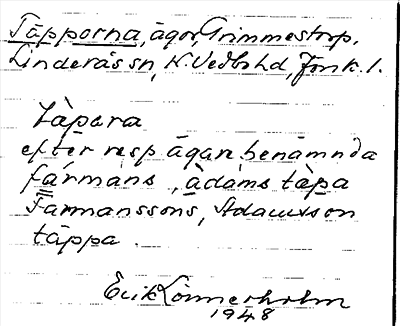 Täpporna, ägor, Grimmestorp,
Linderås sn, N. Vedbo hd, Jönk. l.
tàpara
efter resp ägar. benämnda
fármans, àdàms tàpa
Färmanssons, Adamsson
täppa.
Erik Lönnerholm
1948